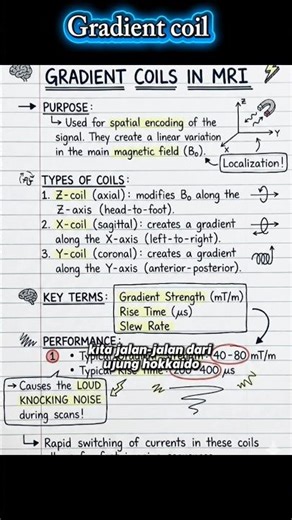 Gradient coil
GRADIENT COILS IN MRI
PURPOSE:
Used for spatial encoding of the
signal. They create a linear variation
in the main magnetic field (B₀).
Z
Y
X
Localization!
TYPES OF COILS:
1. Z-coil (axial): modifies B₀ along the
Z-axis (head-to-foot).
2. X-coil (sagittal): creates a gradient
along the X-axis (left-to-right).
3. Y-coil (coronal): creates a gradient
along the Y-axis (anterior-posterior).
KEY TERMS:
Gradient Strength (mT/m)
Rise Time (µs)
Slew Rate
PERFORMANCE:
1 • Typical 40-80 mT/m
kita jalan-jalan dari
ujung hokkaido
• Typical Rise Time (200-400) µs
Causes the LOUD
KNOCKING NOISE
during scans!
Rapid switching of currents in these coils